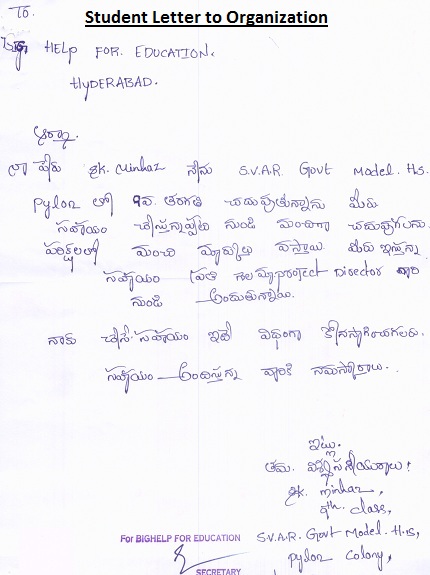 Student Letter to Organization
To.
Big HELP FOR. EDUCATION.
HYDERABAD.
ఆర్యా.
నా పేరు Sk. Minhaz నేను S.V.A.R. Govt Model. H.S.
Pylon లో 9వ. తరగతి చదువుతున్నాను మీరు
సహాయం చేస్తున్నప్పటి నుండి మంచిగా చదువుగలను.
పరీక్షలలో మంచి మార్కులు వస్తాయి. మీరు ఇస్తున్న
సహాయం ప్రతి నెల మా project Director వారి
నుండి అందుతున్నాయి.
నాకు చేసే సహాయం ఇదే విధంగా కొనసాగించగలరు.
సహాయం అందిస్తున్న వారికి నమస్కారాలు.
ఇట్లు.
తమ. విశ్వసనీయురాలు!
Sk. minhaz,
9th. class,
S.V.A.R. Govt Model. H.S,
pylon colony,
For BIGHELP FOR EDUCATION
SECRETARY